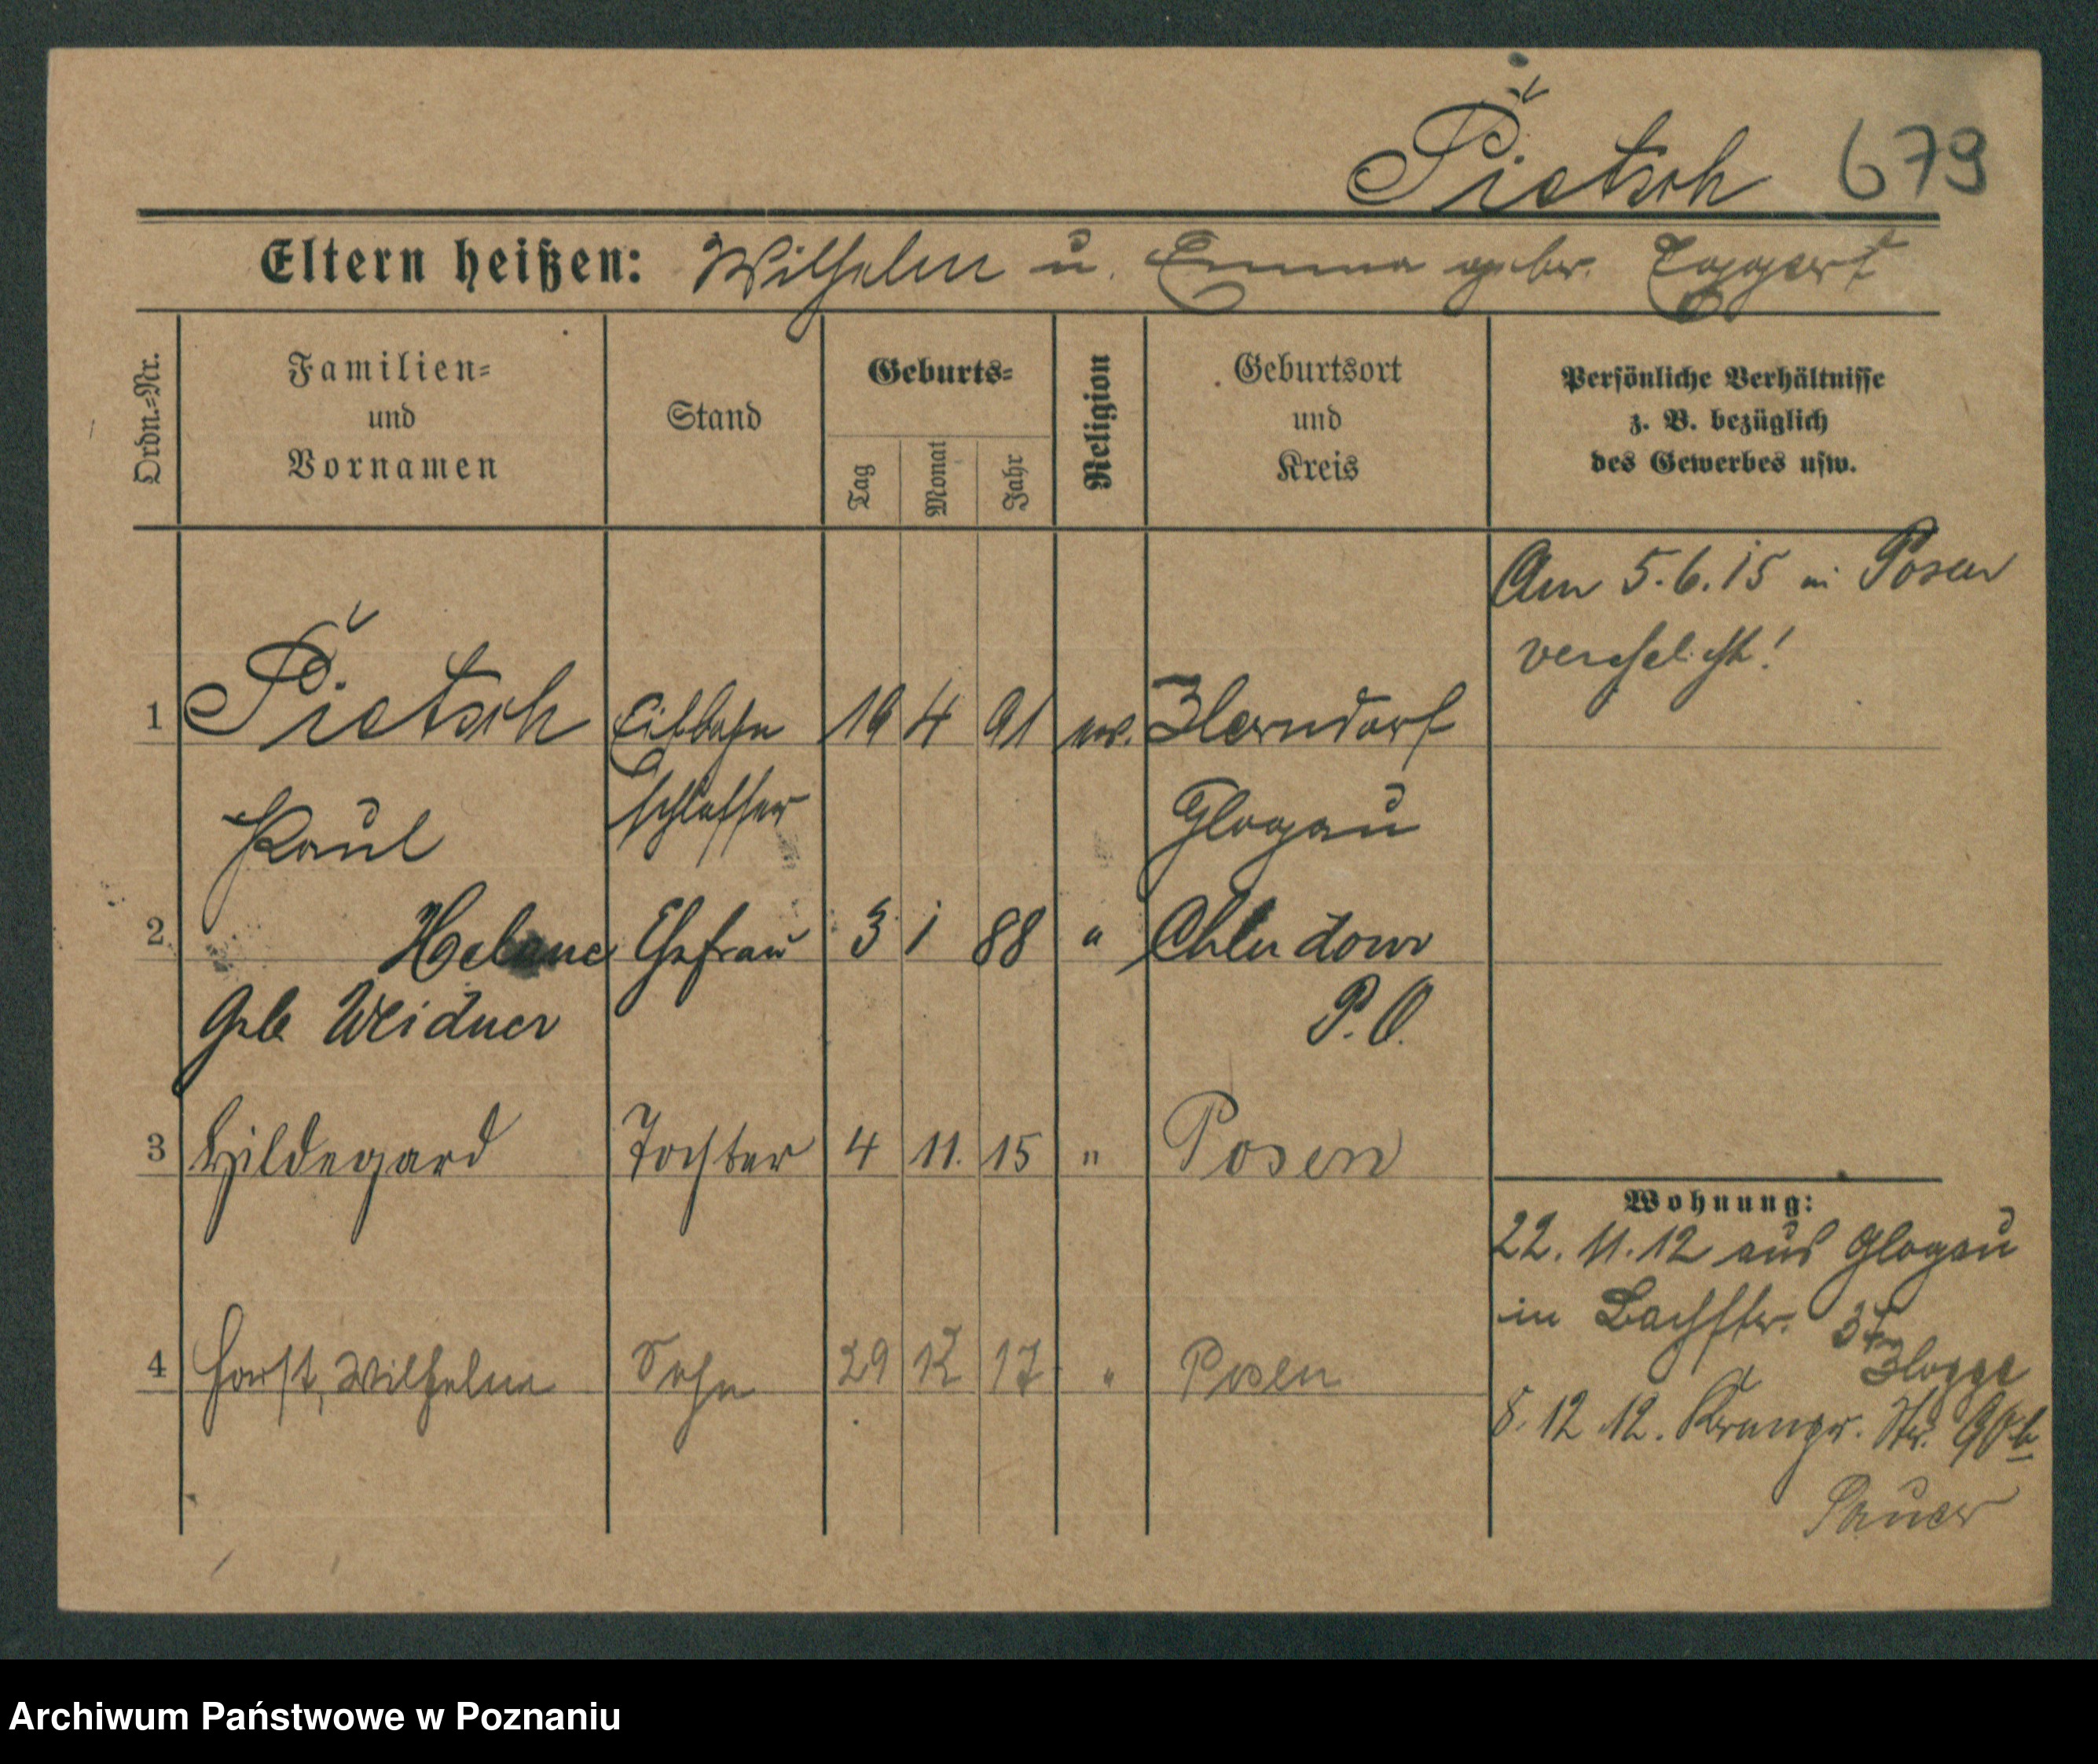 Pietsch 679
Eltern heißen: Wilhelm u. Emma gebr.
Ordn.-Nr.
Familien-
und
Vornamen
Stand
Geburts-
Tag
Monat
Jahr
Religion
Geburtsort
und
Kreis
Persönliche Verhältnisse
z. B. bezüglich
des Gewerbes usw.
Am 5.6.15 in Posen
verehelicht!
1 Pietsch 4 91 ev.
Paul schlosser Glogau
2 Helene Ehefrau 3 1 88 " Chludowo
Geb Weidner P.O.
3 Hildegard Tochter 4 11. 15 " Posen
Wohnung:
22.11.12 aus Glogau
in Bachstr.
4 Horst, Wilhelm Sohn 29 12 17 " Posen
8.12.12. Str.
Archiwum Państwowe w Poznaniu